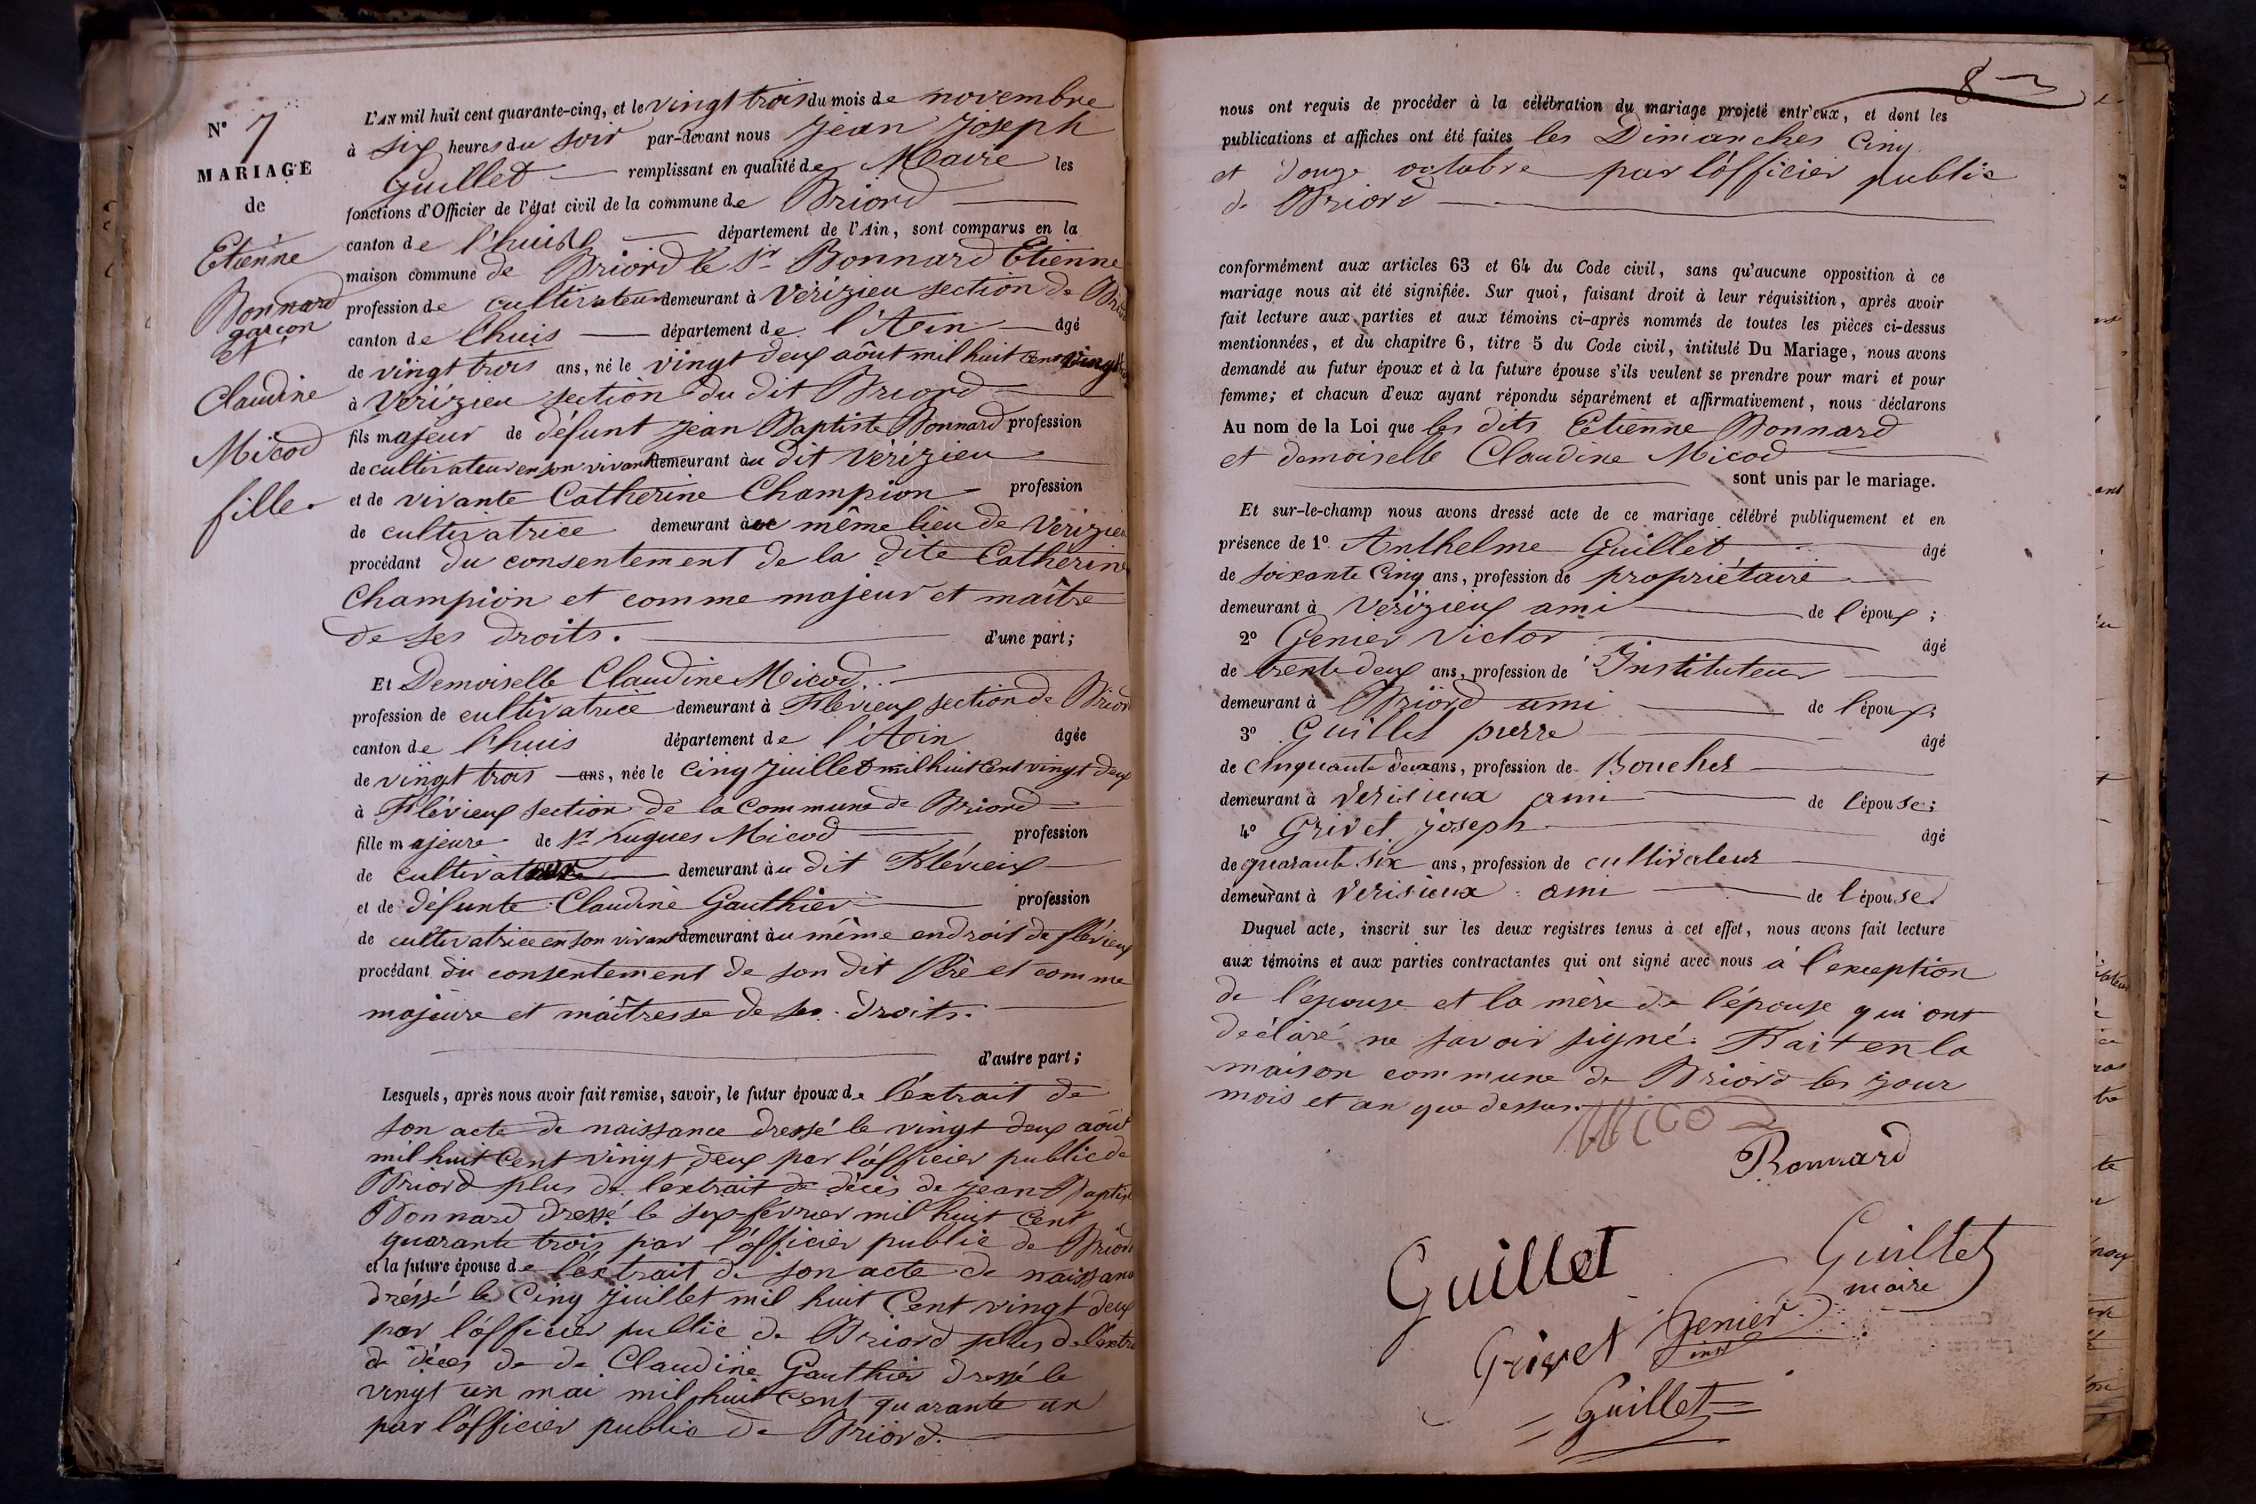 N° 7
MARIAGE
de
Etienne
Bonnard
garçon
et
Claudine
Micod
fille.
L'AN mil huit cent quarante-cinq, et le vingt trois du mois de novembre
à six heures du soir par-devant nous Jean Joseph
Guillet remplissant en qualité de Maire les
fonctions d'Officier de l'état civil de la commune de Briord
canton de l'huis département de l'Ain, sont comparus en la
maison commune de Briord le Sr Bonnard Etienne
profession de cultivateur demeurant à Vérizieu section de
canton de l'huis département de l'Ain âgé
de vingt trois ans, né le vingt deux août mil huit cent
à Vérizieu section du dit Briord
fils majeur de défunt Jean Baptiste Bonnard profession
de cultivateur en son vivant demeurant àu dit Vérizieu
et de vivante Catherine Champion profession
de cultivatrice demeurant àu même lieu de Vérizieu
procédant du consentement de la dite Catherine
Champion et comme majeur et maître
de ses droits. d'une part;
Et Demoiselle Claudine Micod
profession de cultivatrice demeurant à Flévieux section de Briord
canton de l'huis département de l'Ain âgée
de vingt trois ans, née le cinq Juillet mil huit cent vingt deux
à Flévieux section de la commune de Briord
fille majeure de Sr hugues Micod profession
de cultivateur demeurant àu dit Flévieux
et de défunte Claudine Gauthier profession
de cultivatrice en son vivant demeurant àu même endroit de flévieux
procédant du consentement de son dit Père et comme
majeure et maîtresse de ses droits.
d'autre part;
Lesquels, après nous avoir fait remise, savoir, le futur époux de l'extrait de
son acte de naissance dressé le vingt deux août
mil huit cent vingt deux par l'officier public de
Briord plus de l'extrait de décès de Jean Baptiste
Bonnard dressé le six février mil huit cent
quarante trois par l'officier public de Briord
et la future épouse de l'extrait de son acte de naissance
dréssé le cinq Juillet mil huit cent vingt deux
par l'officier public de Briord plus de l'extrait
de décès de de Claudine Gauthier dressé le
vingt un mai mil huit cent quarante un
par l'officier public de Briord.
8
nous ont requis de procéder à la célébration du mariage projeté entr'eux, et dont les
publications et affiches ont été faites les Dimanches cinq
et douze octobre par l'officier public
de Briord
conformément aux articles 63 et 64 du Code civil, sans qu'aucune opposition à ce
mariage nous ait été signifiée. Sur quoi, faisant droit à leur réquisition, après avoir
fait lecture aux parties et aux témoins ci-après nommés de toutes les pièces ci-dessus
mentionnées, et du chapitre 6, titre 5 du Code civil, intitulé Du Mariage, nous avons
demandé au futur époux et à la future épouse s'ils veulent se prendre pour mari et pour
femme; et chacun d'eux ayant répondu séparément et affirmativement, nous déclarons
Au nom de la Loi que les dits Etienne Bonnard
et demoiselle Claudine Micod
sont unis par le mariage.
Et sur-le-champ nous avons dressé acte de ce mariage célébré publiquement et en
présence de 1° Anthelme Guillet âgé
de soixante cinq ans, profession de propriétaire
demeurant à Vérizieux ami de l'époux;
2° Genier Victor âgé
de trente deux ans, profession de Instituteur
demeurant à Briord ami de l'époux;
3° Guillet pierre âgé
de cinquante deux ans, profession de Boucher
demeurant à Verisieux ami de l'épouse;
4° Grivet Joseph âgé
de quarante six ans, profession de cultivateur
demeurant à Verisieux ami de l'épouse.
Duquel acte, inscrit sur les deux registres tenus à cet effet, nous avons fait lecture
aux témoins et aux parties contractantes qui ont signé avec nous à l'exception
de l'épouse et la mère de l'épouse qui ont
déclaré ne savoir signé. Fait en la
maison commune de Briord les jour
mois et an que dessus.
Micod
Bonnard
Guillet
Guillet
maire
Genier
inst
Grivet
Guillet